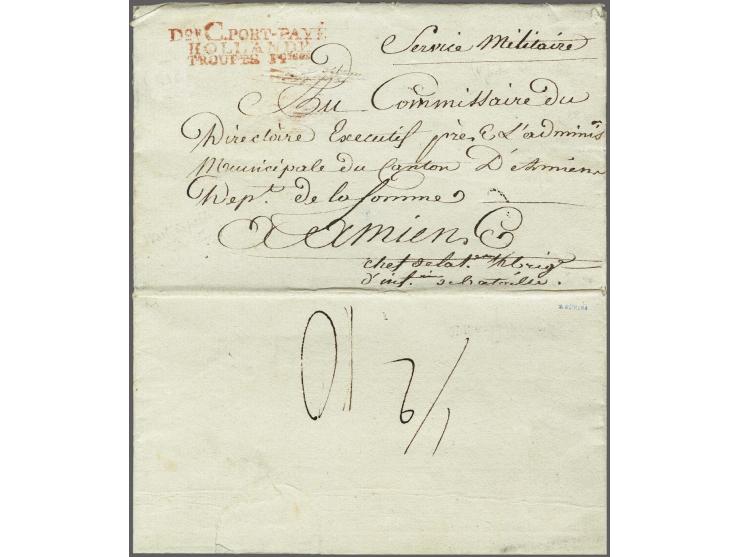 Don C. PORT-PAYÉ
HOLLANDE
TROUPES Fses
Service Militaire
Au Commissaire du
Directoire Executif près L'adminis
Municipale du Canton D'Amiens
Dept. de la Somme
A Amiens
chef de la
d'inf.ie de bataille.